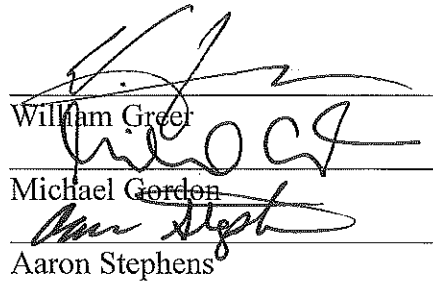 William Greer
Michael Gordon
Aaron Stephens